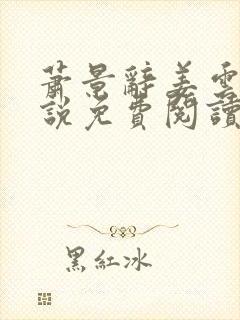 蕭景辭姜雲
說免費閱讀
黑紅冰